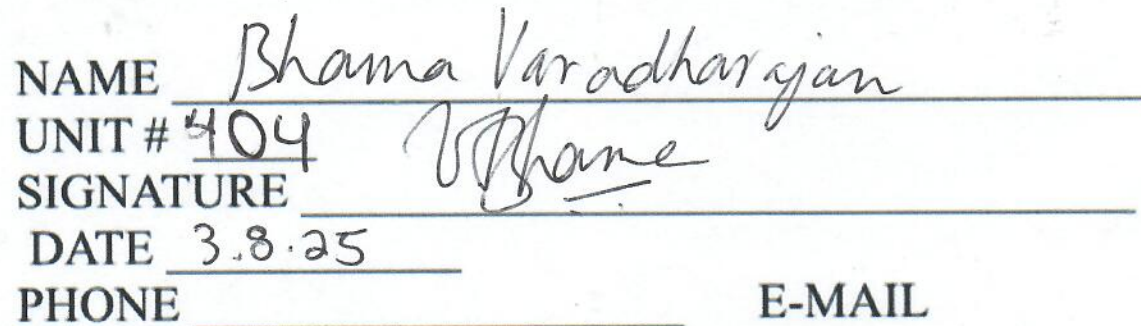 NAME Bhama Varadharajan
UNIT # 404
VBhama
SIGNATURE
DATE 3.8.25
PHONE E-MAIL